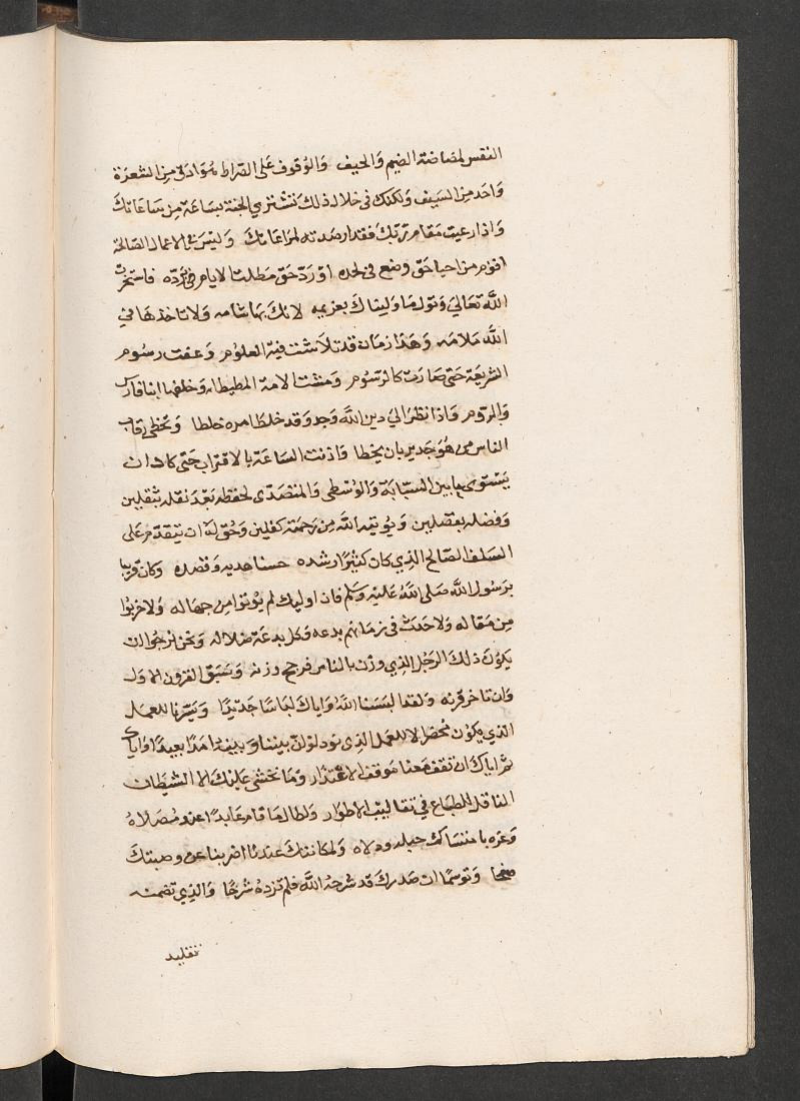 النفس لمضاضة الضيم والحيف والوقوف على الصراط هو ادق من الشعرة
واحد من السيف ولكنك في خلال ذلك تشتري الجنة بساعة من ساعاتك
واذا رعيت مقام ربك فقد ارصدته لمراعاتك وليس في الاعمال الصالحة
اقوم من احيا حق وضع في لحده او رد حق مطلت الايام في رده فاستخرت
الله تعالى وتولها وليناك بعزيمه لانك بها شامه ولا تاخذها في
الله ملامه وهذا زمان قد تلاشت فيه العلوم وعفت رسوم
الشريعة حتى صارت كالرسوم ومشت الامة المطيطا وخلفها ابنا فارس
والروم واذا نظر الى دين الله وجد وقد خلط امره خلطا وتخطى رقاب
الناس من هو جدير بان يخطا واذنت الساعة بالاقتراب حتى كادت ان
يستوى ما بين السبابة والوسطى والمتصدى لحفظه يعد نقله بثقلين
وفضله بفضلين ويوتيه الله من رحمته كفلين وحق له ان يتقدم على
السلف الصالح الذي كان كثيرا رشده حسنا هديه وقصده وكان قريبا
برسول الله صلى الله عليه وسلم فان اوليك لم يوتوا من جهاله ولا حربوا
من مقاله ولا حدث في زمانهم بدعه وكل بدعة ضلاله ونحن نرجوا ان
يكون ذلك الرجل الذي وزن بالناس فرجح وزنه وسبق القرون الاول
وان تاخر قرنه ولقد البسنا الله واياك لباسا جديدا ويسرنا للعمل
الذي يكون محضرا لا للعمل الذي نود لو ان بيننا وبينه امدا بعيدا واياك
ثم اياك ان تقف معنا موقف الاعتذار وما نخشى عليك الا الشيطان
الناقل للطباع في تقاليب الاطوار ولطالما قام عابدا عن مصلاه
وغره بامتساك حبله ودلاه ولمكانتك عندنا اضربنا عن وصيتك
صفحا وتوسمنا ان صدرك قد شرحه الله فلم نزده شرحا والذي تضمنه
تقليد